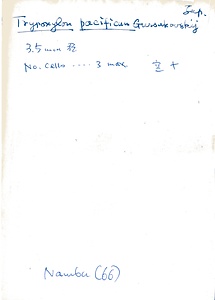 Jap.
Trypoxylon pacificum Gussakovskij
3.5 mm
No. cells .... 3 max +
Nambu (66)